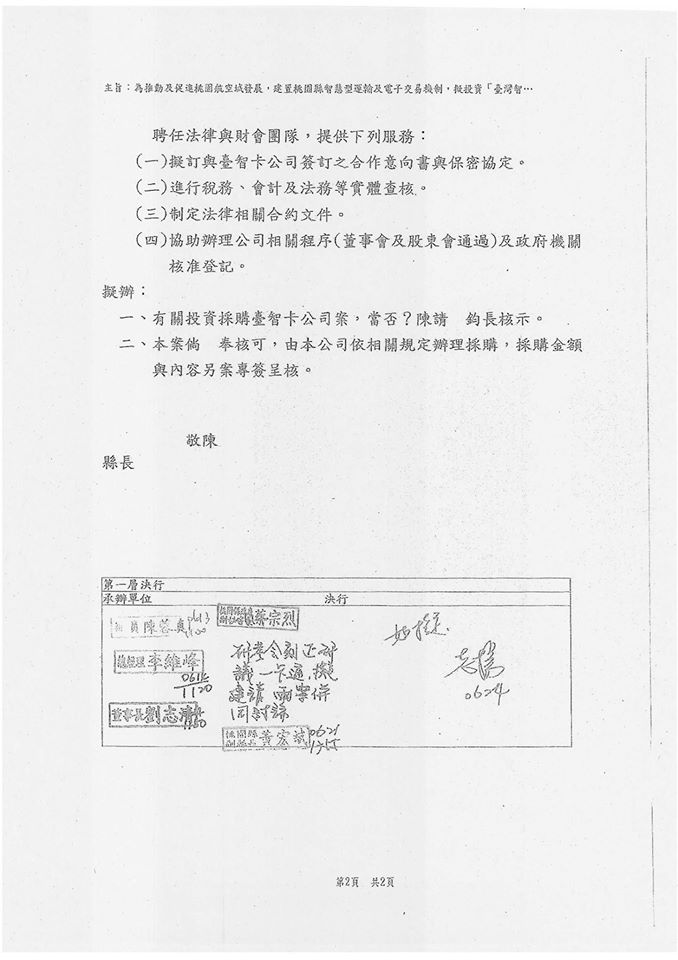 主旨：為推動及促進桃園航空城發展，建置桃園縣智慧型運輸及電子交易機制，擬投資「臺灣智…
聘任法律與財會團隊，提供下列服務：
(一)擬訂與臺智卡公司簽訂之合作意向書與保密協定。
(二)進行稅務、會計及法務等實體查核。
(三)制定法律相關合約文件。
(四)協助辦理公司相關程序(董事會及股東會通過)及政府機關
核准登記。
擬辦：
一、有關投資採購臺智卡公司案，當否？陳請　鈞長核示。
二、本案倘　奉核可，由本公司依相關規定辦理採購，採購金額
與內容另案專簽呈核。
敬陳
縣長
第一層決行
承辦單位　決行
專員陳蓉真
蔡宗烈
總經理李維峰
1120
董事長劉志清
研考會刻正研
議一卡通，擬
建請兩案併
同討論
桃園縣副縣長黃宏斌 0621
如擬
志揚
0624
第2頁　共2頁